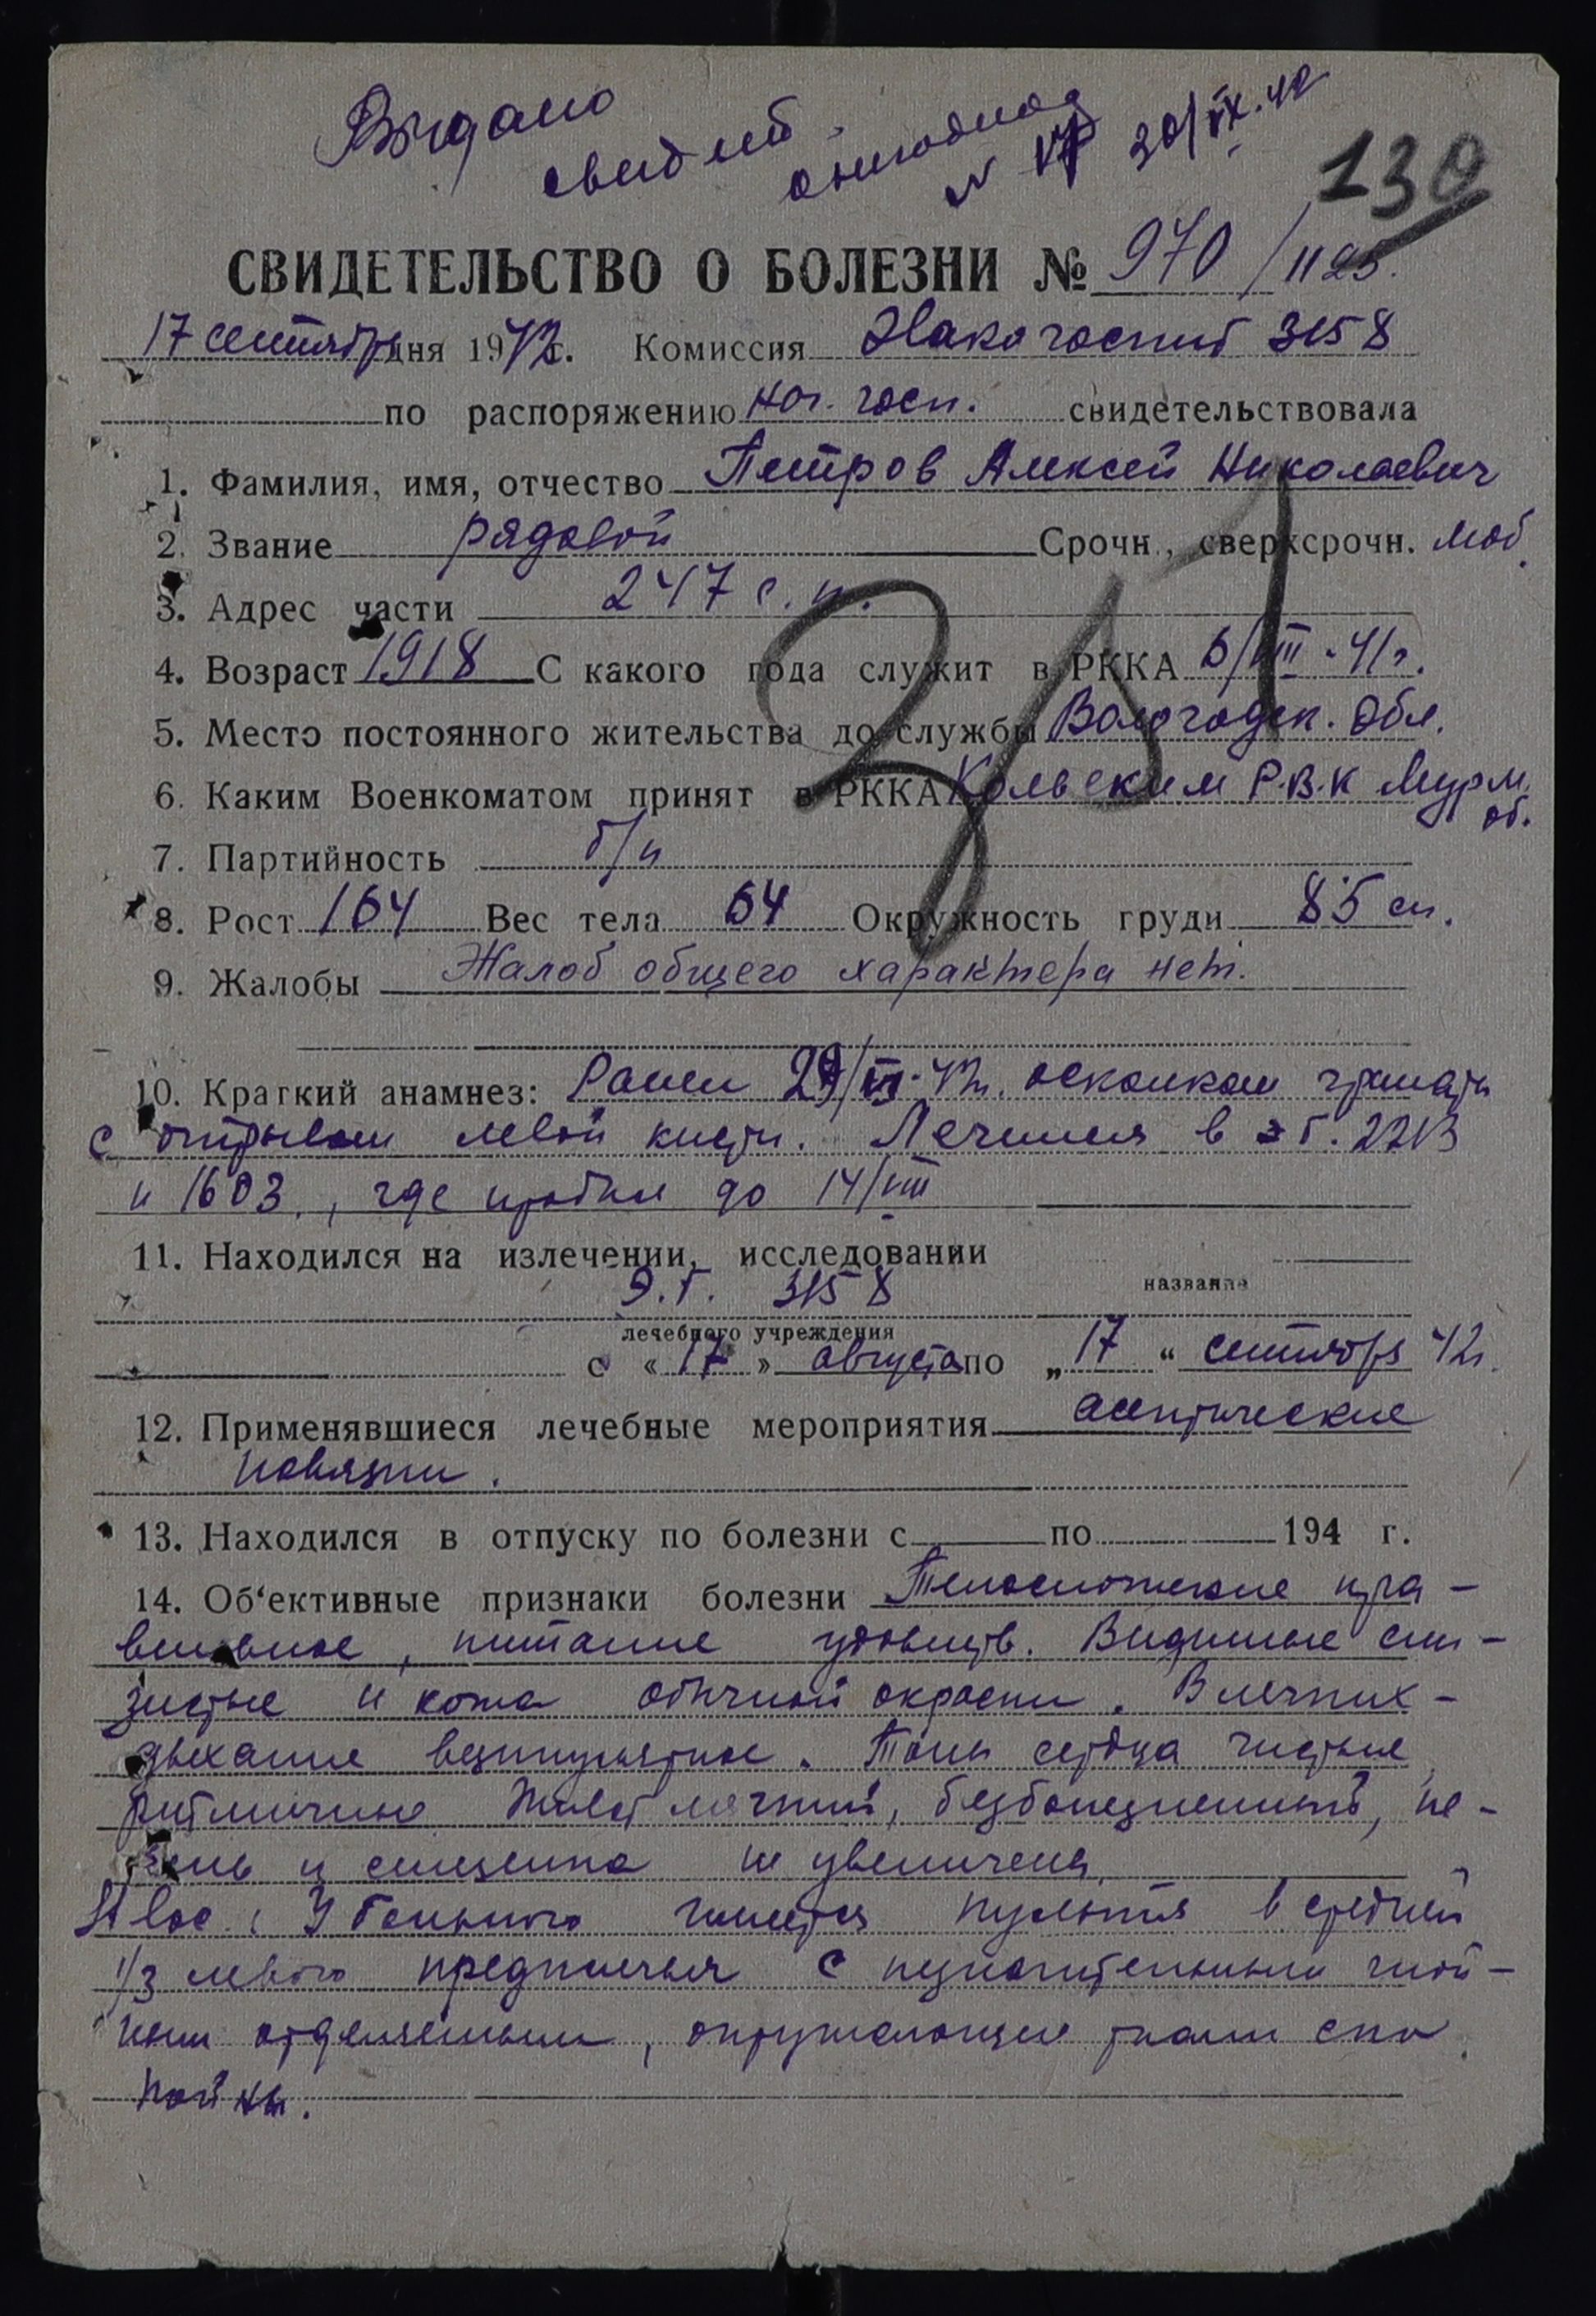 Выдано
свидет.
№ 17 20/IX.42
130
СВИДЕТЕЛЬСТВО О БОЛЕЗНИ № 970/1125.
17 сентября дня 1942г. Комиссия Эвакогоспит 3158
по распоряжению нач. госп. свидетельствовала
1. Фамилия, имя, отчество Петров Алексей Николаевич
2. Звание рядовой Срочн., сверхсрочн. моб.
3. Адрес части 247 с.п.
4. Возраст 1918 С какого года служит в РККА 6/VIII-41г.
5. Место постоянного жительства до службы Вологодск. обл.
6. Каким Военкоматом принят в РККА Кольским Р.В.К Мурм.
об.
7. Партийность б/п
8. Рост 164 Вес тела 64 Окружность груди 85 см.
9. Жалобы Жалоб общего характера нет.
10. Краткий анамнез: Ранен 29/VI-42г. осколком гранаты
с отрывом левой кисти. Лечился в эг. 2213
и 1603, где пробыл до 14/VIII
11. Находился на излечении, исследовании
название
Э.Г. 3158
лечебного учреждения
с «17» августа по „17“ сентября 42г.
12. Применявшиеся лечебные мероприятия асептические
повязки.
13. Находился в отпуску по болезни с по 194 г.
14. Об‘ективные признаки болезни Телосложение пра-
вильное, питание удовлетв. Видимые сли-
зистые и кожа обычной окраски. В легких-
дыхание везикулярное. Тоны сердца чистые
ритмичные Живот мягкий, безболезненный, пе-
чень и селезенка не увеличены.
St. loc.: У больного имеется культя в средней
1/3 левого предплечья с незначительным гной-
ным отделяемым, окружающие ткани спо
койны.